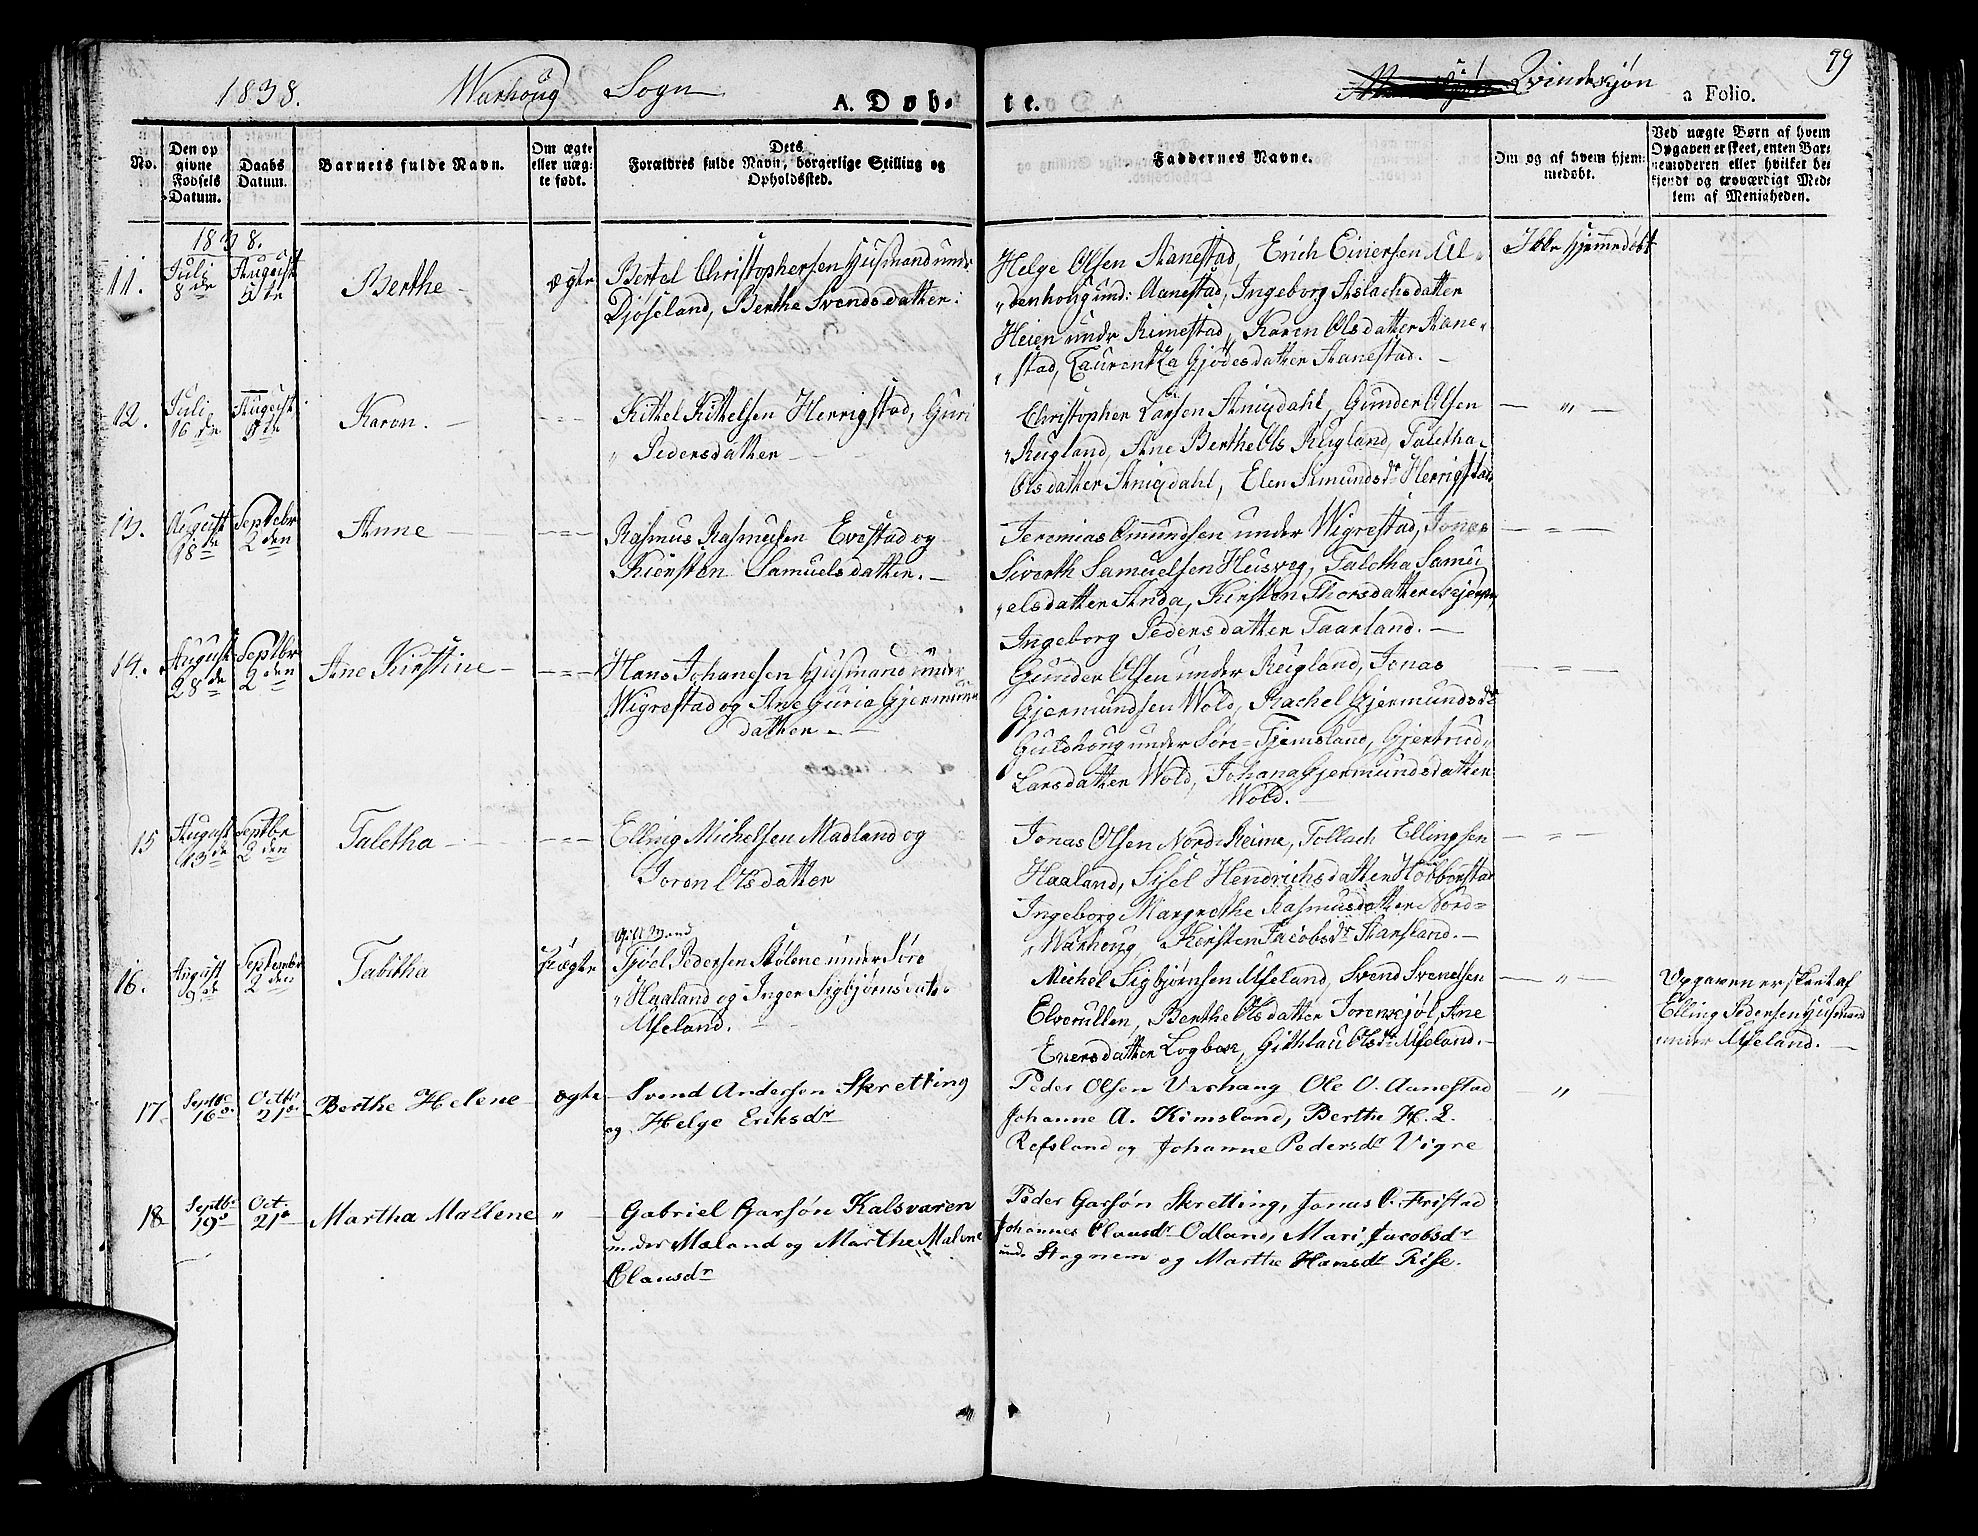 1838. Warhoug Sogn A. Døb-
te. Qvindekjøn a Folio. 79
No.
Den op
givne
Fødsels
Datum.
Daabs
Datum.
Barnets fulde Navn.
Om ægte
eller uæg-
te født.
Dets
Forældres fulde Navn, borgerlige Stilling og
Opholdssted.
Faddernes Navne.
Om og af hvem hjem-
medøbt.
Ved uægte Børn af hvem
Opgaven er skeet, enten Bar-
nemoderen eller hvilket be-
kjendt og troværdigt Med-
lem af Menigheden.
1838.
11. Juli 8de August 5te Berthe ægte
Bertel Christophersen Huusmand und:
Djøseland, Berthe Svendsdatter:
Helge Olsen Aanestad, Erich Einersen Ul-
"denhoug und: Aanestad, Ingeborg Aslachsdatter
Heien undr Rimestad, Karen Olsdatter Aane-
"stad, Laurentza Gjødesdatter Aanestad.
Ikke hjemmedøbt
12. Juli 16de August 5te Karen. -"-
Kittel Kittelsen Herrigstad, Guri
" Pedersdatter
Christopher Larsen Aniqdahl, Gunder Olsen
"Rugland, Ane Berthe Ols Rugland, Taletha
Olsdatter Aniqdahl, Elen Amundsdr Herrigstad
— " —
13. August 18de Septebr 2den Anne -"-
Rasmus Rasmusen Evestad og
Kiersten Samuelsdatter.
Jeremias Omundsen under Wigrestad, Jonas
Siverth Samuelsen Husveg, Taletha Samu
"elsdatter Anda, Kirsten Thorsdatter
Ingeborg Pedersdatter Taarland.
— " —
14. August 28de Septbr 2den Ane Kirstine -"-
Hans Johanesen Huusmand under
Wigrestad og Ane Guria Gjermun
datter
Gunder Olsen under Rugland, Jonas
Gjermundsen Wold, Rachel Gjermundsdr
Guldhoug under Søre-Tjemsland, Gjertrud
Larsdatter Wold, Johana Gjermundsdatter
Wold.
— " —
15 August 13de Septbr 2den Taletha -"-
Elling Michelsen Madland og
Joren Olsdatter
Jonas Olsen Nord-Reime, Tollach Ellingsen
Haaland, Sisel Hendrichsdatter Horborstad
Ingeborg Margrethe Rasmusdatter Nord-
"Warhoug Kersten Jacobsdr Aarsland.
— " —
16. August 9de Septembr 2den Tabitha Uægte
Gift Mand
Tjøel Pedersen Stølene under Søre
"Haaland og Inger Sigbjørnsdatr
Ueland.
Michel Sigbjørnsen Ueland, Svend Svendsen
Elverullen, Berthe Olsdatter Torenskjøl, Ane
Enersdatter Logboe, Githlau Olsdr Ueland.
— " —
Opgaven er skeet af
Elling Pedersen Huusmand
under Ueland.
17 Septbr 16d. Octbr 21d Berthe Helene ægte
Svend Andersen Skretting
og Helge Eriksdr
Peder Olsen Varhaug Ole O. Aanestad
Johanne A. Kimsland, Berthe H. L.
Refsland og Johanne Pedersdr Vigre
"
18 Septbr 19d Oct. 21d Martha Mallene "
Gabriel Garsøn Kalsvaren
under Mæland og Marthe Malene
Clausdr
Peder Garsøn Skretting, Jonas O. Fristad
Johannes Clausdr Odland, Mari Jacobsdr
und. Stagnem og Marthe Hansdr Riise.